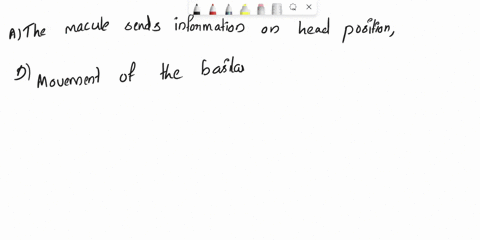 A) The macule sends information on head position,
D) Movement of the basila